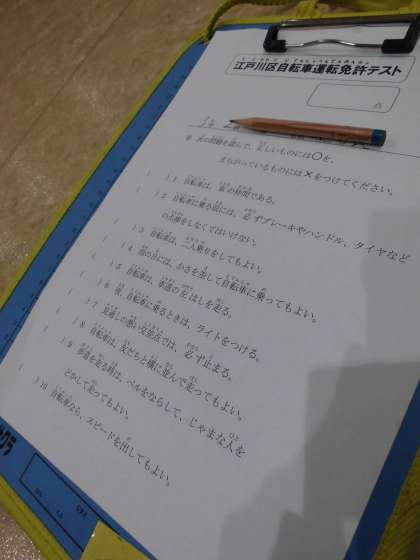 江戸川区自転車運転免許テスト
点
次の問題を読んで、正しいものには○を、
まちがっているものには×をつけてください。
( )1 自転車は、車の仲間である。
( )2 自転車に乗る前には、必ずブレーキやハンドル、タイヤなど
の点検をしなくてはいけない。
( )3 自転車は、二人乗りをしてもよい。
( )4 雨の日には、かさを差して自転車に乗ってもよい。
( )5 自転車は、車道の左はしを走る。
( )6 夜、自転車に乗るときは、ライトをつける。
( )7 見通しの悪い交差点では、必ず止まる。
( )8 自転車は、友だちと横に並んで走ってもよい。
( )9 歩道を走る時は、ベルをならして、じゃまな人を
どかして走ってもよい。
( )10 自転車なら、スピードを出してもよい。